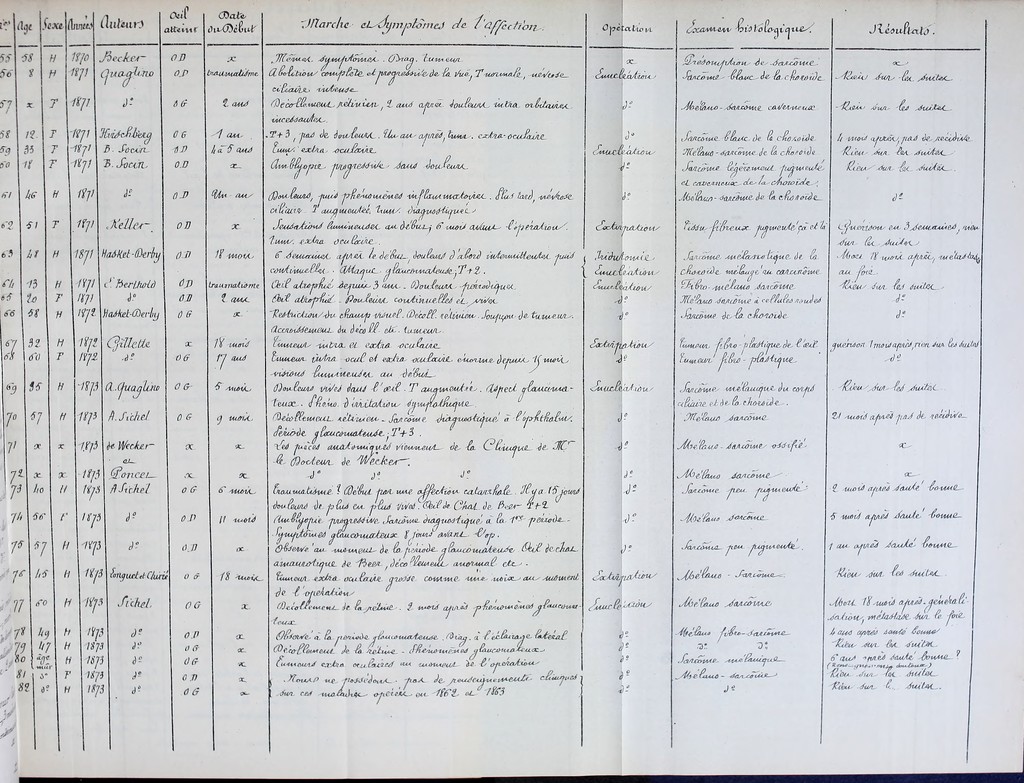 N° Age Sexe Années Auteurs Oeil atteint Date du Début Marche et Symptômes de l'affection. Opération Examen histologique. Résultats.
55 58 H 1870 Becker OD x Mêmes symptômes. Diag. tumeur x Présomption de sarcôme x
56 8 H 1871 Quaglino OD traumatisme Abolition complète et progressive de la vue, T normale, névrose Enucléation Sarcôme blanc de la choroïde Rien sur les suites
ciliaire intense
57 x F 1871 d° OG 2 ans Décollement rétinien, 2 ans après douleurs intra orbitaires d° Mélano-sarcôme caverneux Rien sur les suites
incessantes
58 12 F 1871 Hirschberg OG 1 an T+3, pas de douleurs. Un an après, tum. extra-oculaire d° Sarcôme blanc de la choroïde 4 mois après, pas de récidive
59 33 F 1871 B. Socin OD 4 à 5 ans Tum. extra oculaire Enucléation Mélano-sarcôme de la choroïde Rien sur les suites
60 18 F 1871 B. Socin OD x Amblyopie progressive sans douleurs d° Sarcôme légèrement pigmenté Rien sur les suites
et caverneux de la choroïde.
61 46 H 1871 d° OD Un an Douleurs, puis phénomènes inflammatoires. Plus tard, névrose d° Mélano-sarcôme de la choroïde d°
ciliaire T augmentée, tum. diagnostiquée
62 51 F 1871 Keller. OD x Sensations lumineuses au début; 6 mois avant l'opération. Extirpation Tissu fibreux pigmenté çà et là Guérison en 3 semaines, rien
tum. extra oculaire. sur les suites
63 48 H 1871 Hasket-Derby OD 18 mois 6 semaines après le début, douleurs d'abord intermittentes puis Iridotomie Sarcôme mélanotique de la Mort 18 mois après, métastase
continuelles. Attaque glaucomateuse, T+2. Enucléation choroïde mélangé au carcinôme au foie
64 13 H 1871 E. Berthold OD traumatisme Oeil atrophié depuis 3 ans. Douleurs périodiques Enucléation Fibro-mélano sarcôme Rien sur les suites
65 20 F 1871 d° OD 2 ans Oeil atrophié. Douleurs continuelles et vives d° Mélano sarcôme à cellules rondes d°
66 58 H 1872 Hasket-Derby OG x Restriction du champ visuel. Décoll. rétinien. Soupçon de tumeur. d° Sarcôme de la choroïde d°
Accroissement du décoll. etc. tumeur.
67 32 H 1872 Gillette x 18 mois Tumeur intra et extra oculaire Extirpation Tumeur fibro-plastique de l'oeil guérison 1 mois après, rien sur les suites
68 60 F 1872 d° OG 17 ans Tumeur intra ocul. et extra oculaire énorme depuis 15 mois d° Tumeur fibro-plastique d°
visions lumineuses au début
69 35 H 1873 A. Quaglino OG 5 mois Douleurs vives dans l'oeil. T augmentée. Aspect glaucoma- Enucléation Sarcôme mélanique du corps Rien sur les suites
teux. Phéno. d'irritation sympathique ciliaire et de la choroïde.
70 57 H 1873 A. Sichel OG 9 mois Décollement rétinien. Sarcôme diagnostiqué à l'ophthalm. d° Mélano sarcôme 21 mois après pas de récidive
Période glaucomateuse, T+3.
71 x x 1873 de Wecker x x Les pièces anatomiques viennent de la Clinique de Mr d° Mélano-sarcôme ossifié x
et le Docteur de Wecker.
72 x x 1873 Poncet x x d° d° d° d° Mélano sarcôme x
73 40 H 1873 A. Sichel OG 6 mois Traumatisme? Début par une affection catarrhale. Il y a 15 jours d° Sarcôme peu pigmenté 2 mois après santé bonne
douleurs de plus en plus vives. Oeil de Chat de Beer T+2
74 56 F 1873 d° OD 11 mois Amblyopie progressive. Sarcôme diagnostiqué à la 1re période. d° Mélano sarcôme 5 mois après santé bonne
Symptômes glaucomateux 8 jours avant l'op.
75 57 H 1873 d° OD x Observé au moment de la période glaucomateuse. Oeil de chat d° Sarcôme peu pigmenté. 1 an après santé bonne
amaurotique de Beer, décollement anormal etc.
76 45 H 1873 OG 18 mois Tumeur extra oculaire grosse comme une noix au moment Extirpation Mélano-Sarcôme. Rien sur les suites
de l'opération
77 60 H 1873 Sichel OG x Décollement de la rétine. 2 mois après phénomènes glaucoma- Enucléation Mélano sarcôme Mort 18 mois après. générali
teux sation, métastase sur le foie
78 49 H 1873 d° OD x Observé à la période glaucomateuse. Diag. à l'éclairage latéral d° Mélano fibro-sarcôme 4 ans après santé bonne
79 47 H 1873 d° OG x Décollement de la rétine. Phénomènes glaucomateux d° d° d° Rien sur les suites
80 âge mûr H 1873 d° OG x Tumeurs extra oculaires au moment de l'opération d° Sarcôme mélanique 6 ans après santé bonne?
81 d° F 1873 d° OD x Nous ne possédons pas de renseignements cliniques d° Mélano-sarcôme Rien sur les suites
82 d° H 1873 d° OG x sur ces malades opérés en 1862 et 1863 d° d° Rien sur les suites.